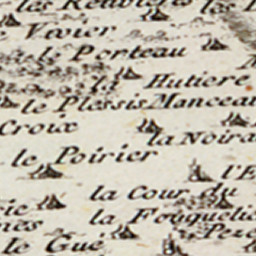 le Vivier
le Porteau
la Hutiere
le Plessis Manceau
Croix
la Noira
le Poirier
l'E
la Cour du
la Fouquelie
le Gué